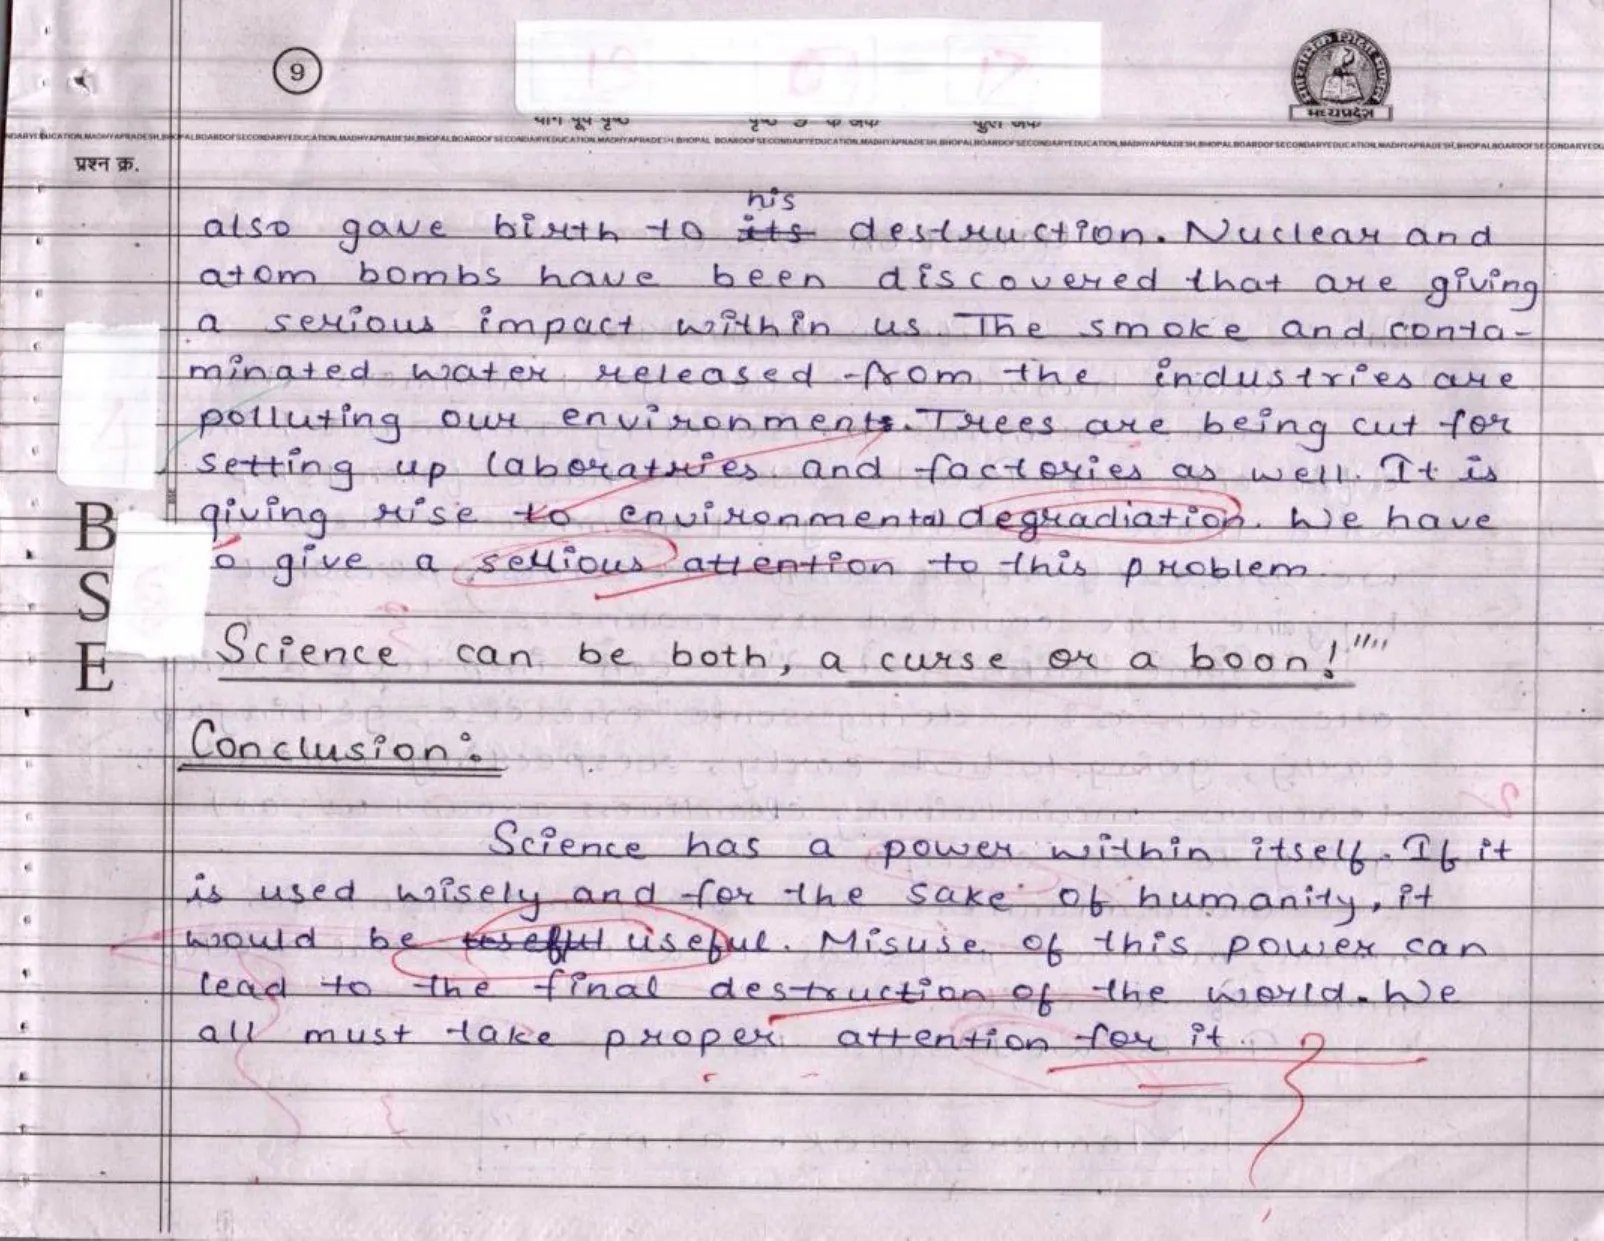 9
योग पूर्व पृष्ठ
पृष्ठ 9 के अंक
कुल अंक
मध्यप्रदेश
BOARD OF SECONDARY EDUCATION, MADHYAPRADESH, BHOPAL
प्रश्न क्र.
his
also gave birth to its destruction. Nuclear and
atom bombs have been discovered that are giving
a serious impact within us. The smoke and conta-
minated water released from the industries are
polluting our environments. Trees are being cut for
setting up laboratries and factories as well. It is
giving rise to environmental degradiation. We have
to give a serious attention to this problem.
B
S
E
Science can be both, a curse or a boon!""
Conclusion:
Science has a power within itself. If it
is used wisely and for the sake of humanity, it
would be useful useful. Misuse of this power can
lead to the final destruction of the world. We
all must take proper attention for it.